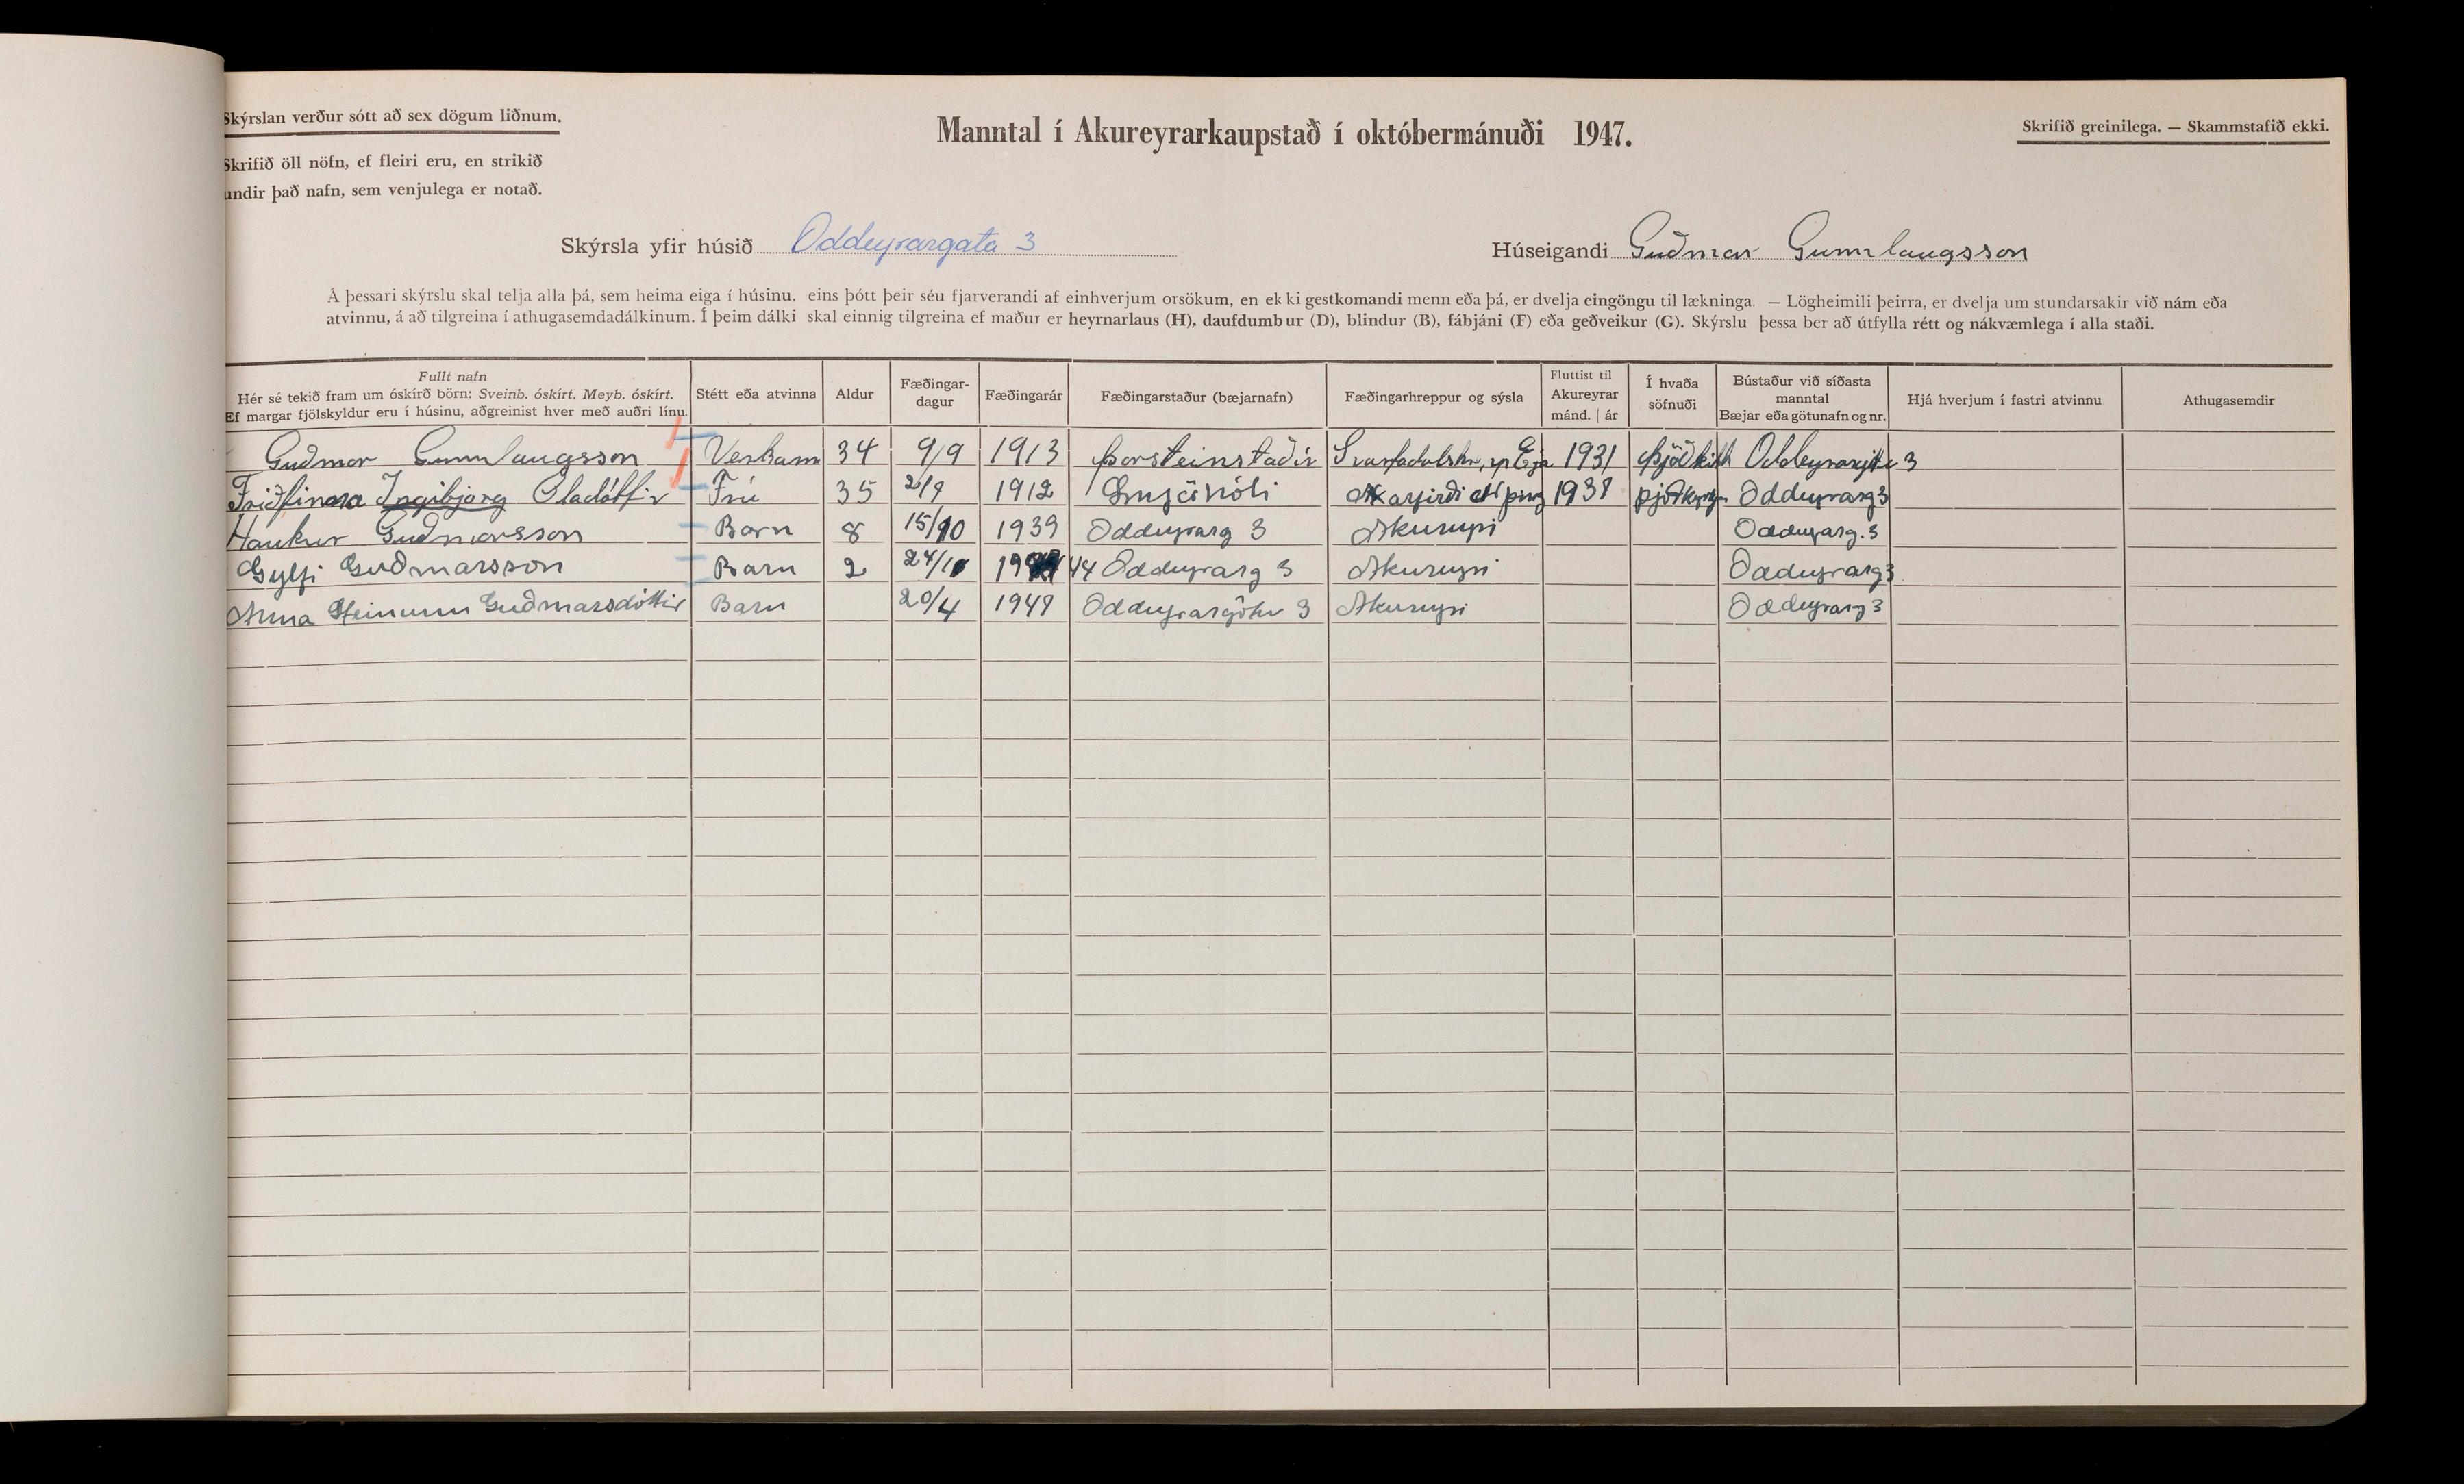 Skýrslan verður sótt að sex dögum liðnum.
Skrifið öll nöfn, ef fleiri eru, en strikið
undir það nafn, sem venjulega er notað.
Manntal í Akureyrarkaupstað í októbermánuði 1947.
Skrifið greinilega. — Skammstafið ekki.
Skýrsla yfir húsið Oddeyrargata 3
Húseigandi Guðmar Gunnlaugsson
Á þessari skýrslu skal telja alla þá, sem heima eiga í húsinu, eins þótt þeir séu fjarverandi af einhverjum orsökum, en ekki gestkomandi menn eða þá, er dvelja eingöngu til lækninga. — Lögheimili þeirra, er dvelja um stundarsakir við nám eða
atvinnu, á að tilgreina í athugasemdadálkinum. Í þeim dálki skal einnig tilgreina ef maður er heyrnarlaus (H), daufdumbur (D), blindur (B), fábjáni (F) eða geðveikur (G). Skýrslu þessa ber að útfylla rétt og nákvæmlega í alla staði.
Fullt nafn
Hér sé tekið fram um óskírð börn: Sveinb. óskírt. Meyb. óskírt.
Ef margar fjölskyldur eru í húsinu, aðgreinist hver með auðri línu.
Stétt eða atvinna
Aldur
Fæðingar-
dagur
Fæðingarár
Fæðingarstaður (bæjarnafn)
Fæðingarhreppur og sýsla
Fluttist til
Akureyrar
mánd. | ár
Í hvaða
söfnuði
Bústaður við síðasta
manntal
Bæjar eða götunafn og nr.
Hjá hverjum í fastri atvinnu
Athugasemdir
Guðmar Gunnlaugsson Verkam 34 9/9 1913 Þorsteinstaðir 1931 Oddeyrargötu 3
Friðfinna Ingibjörg Óladóttir Frú 35 1912 Oddeyrarg 3
Haukur Guðmarsson Barn 8 15/10 1939 Oddeyrarg 3 Akureyri Oddeyrarg. 3
Gylfi Guðmarsson Barn 2 24/10 44 Oddeyrarg 3 Akureyri Oddeyrarg 3
Anna Steinunn Guðmarsdóttir Barn 20/4 Oddeyrargötu 3 Akureyri Oddeyrarg 3